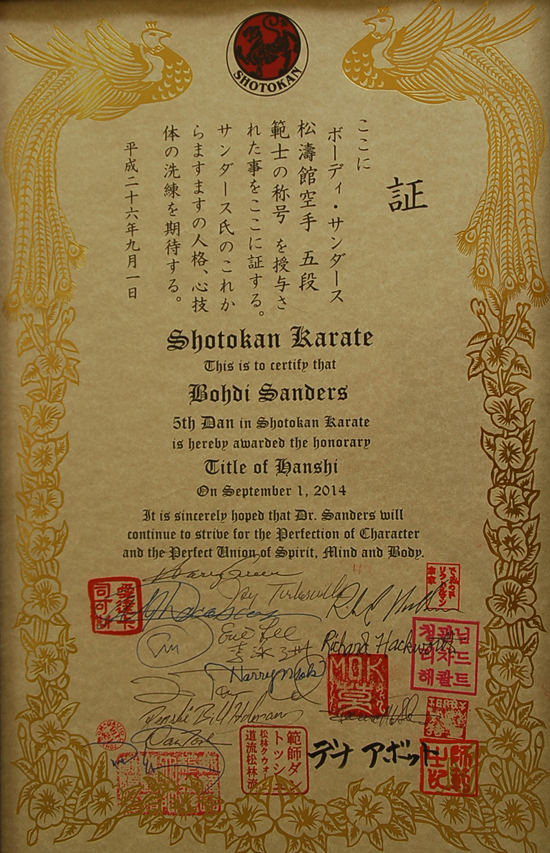 SHOTOKAN
証
ここに
ボーディ・サンダース
松濤館空手 五段
範士の称号 を授与さ
れた事をここに証する。
サンダース氏のこれか
らますますの人格、心技
体の洗練を期待する。
平成二十六年九月一日
Shotokan Karate
This is to certify that
Bohdi Sanders
5th Dan in Shotokan Karate
is hereby awarded the honorary
Title of Hanshi
On September 1, 2014
It is sincerely hoped that Dr. Sanders will
continue to strive for the Perfection of Character
and the Perfect Union of Spirit, Mind and Body.
Richard Hackworth
청관님
리차드
해괄트
Harry Mok
MOK
デナ アボット
範師ダ
トッシ